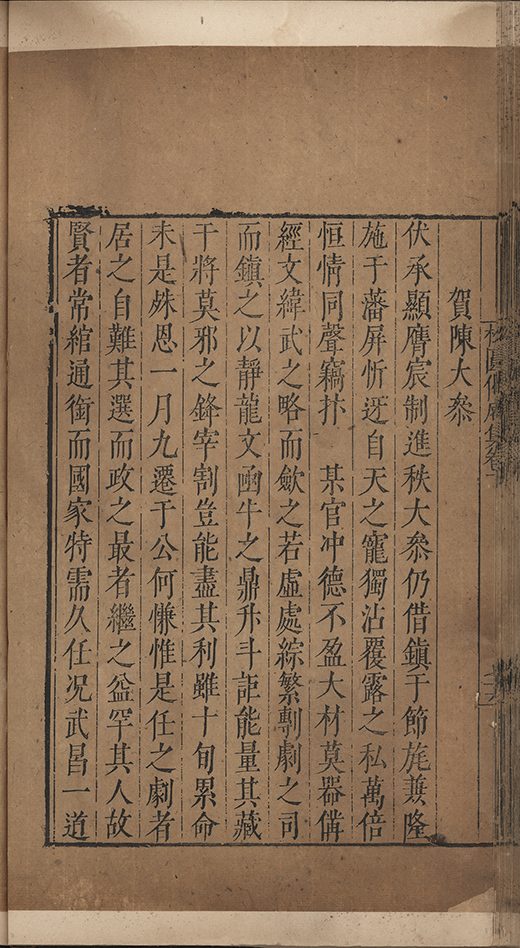 松圓偈庵集卷
賀陳大叅
伏承顯膺宸制進秩大叅仍借鎮于節旄兼隆
施于藩屏忻迓自天之寵獨沾覆露之私萬倍
恒情同聲竊抃　某官冲德不盈大材莫器僃
經文緯武之略而歛之若虛處綜繁剸劇之司
而鎮之以靜龍文函牛之鼎升斗詎能量其藏
干將莫邪之鋒宰割豈能盡其利雖十旬累命
未是殊恩一月九遷于公何慊惟是任之劇者
居之自難其選而政之最者繼之益罕其人故
賢者常綰通銜而國家特需久任况武昌一道